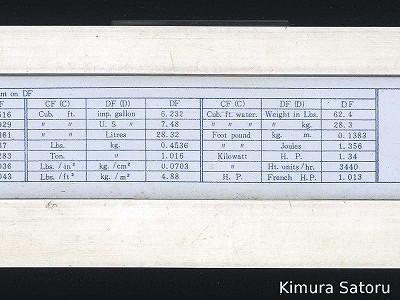 nt on DF
F CF (C) DF (D) DF CF (C) DF (D) DF
516 Cub. ft. imp. gallon 6.232 Cub. ft. water. Weight in Lbs. 62.4
929 〃 〃 U. S 〃 7.48 〃 〃 〃 〃 kg. 28.3
361 〃 〃 Litres 28.32 Foot pound kg. m. 0.1383
37 Lbs. kg. 0.4536 〃 〃 Joules 1.356
283 Ton. 〃 1.016 Kilowatt H. P. 1.34
036 Lbs. /in² kg. /cm² 0.0703 〃 Ht. units/hr. 3440
043 Lbs. /ft² kg. /m² 4.88 H. P. French H. P. 1.013
Kimura Satoru